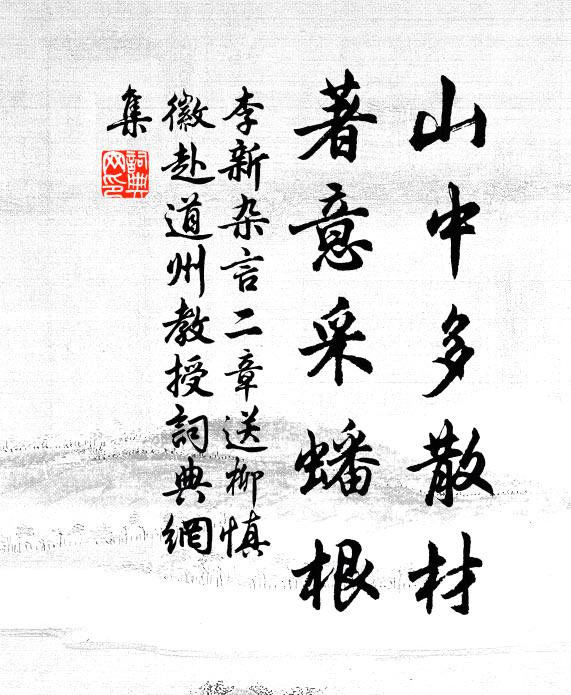 山中多散材
著意采蟠根
李新杂言二章送柳慎
徽赴道州教授詞典網
集
詞典網印